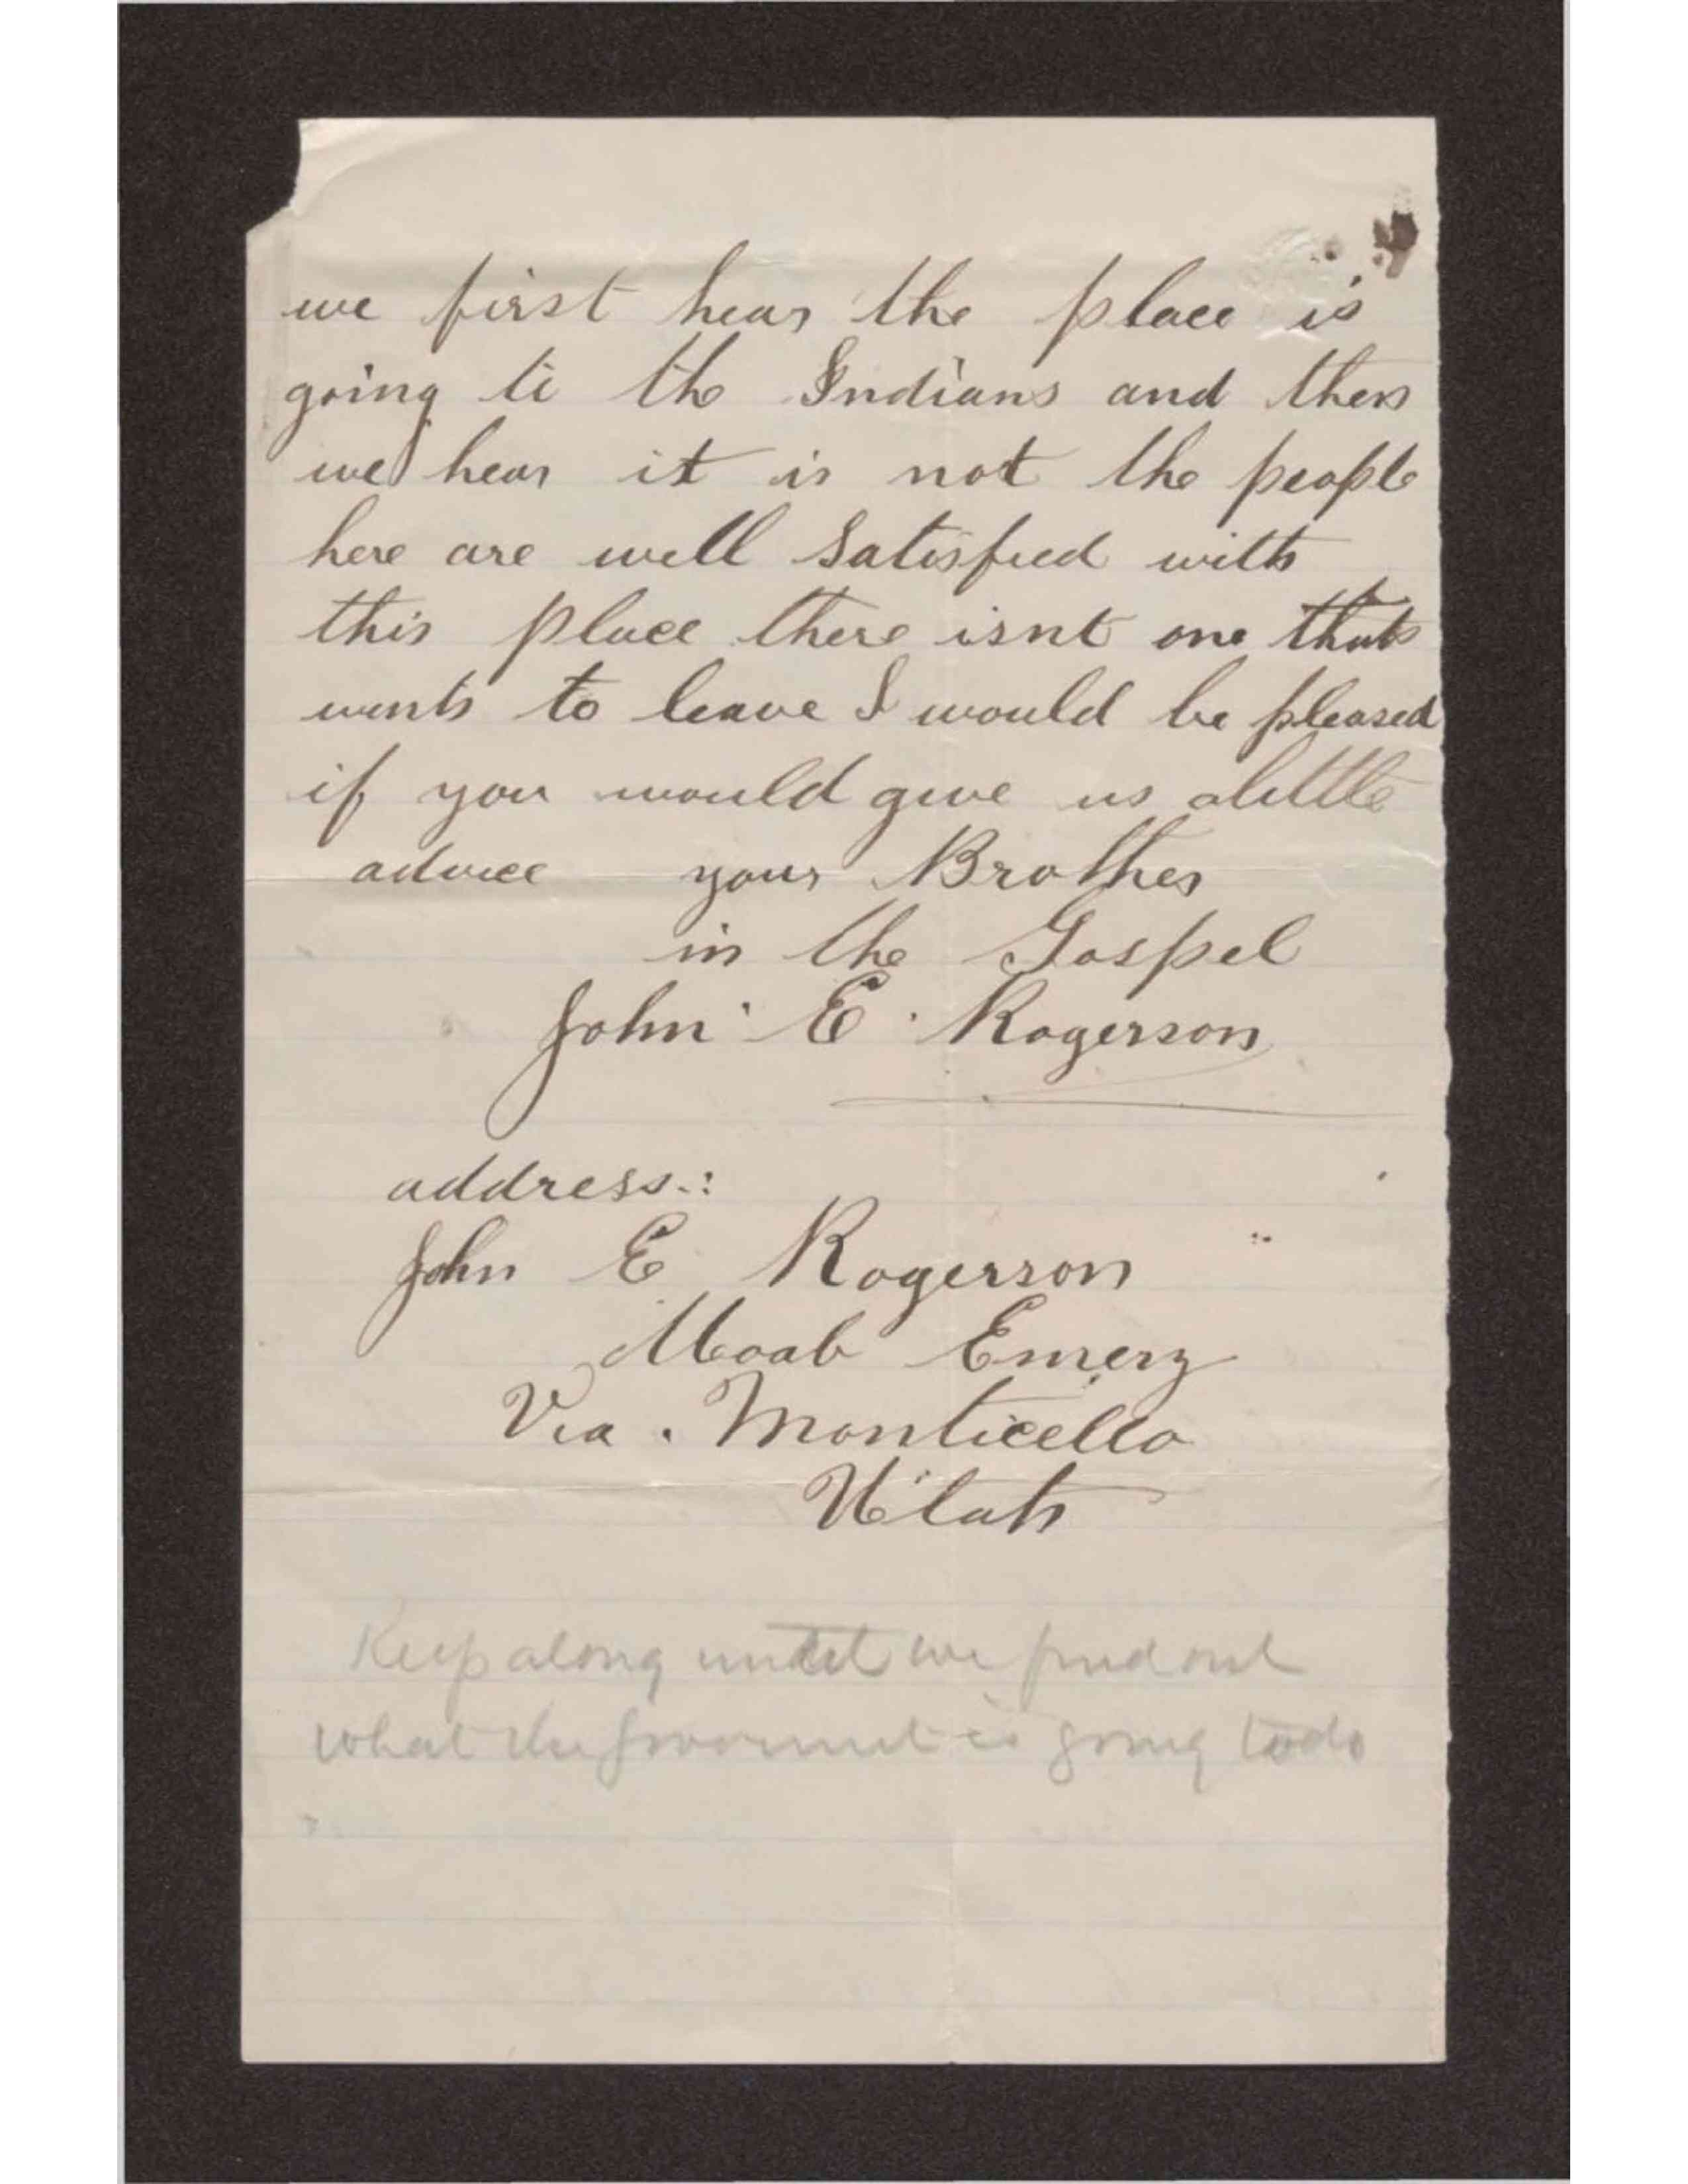 we first hear the place is
going to the Indians and then
we hear it is not the people
here are well satisfied with
this place there isnt one that
wants to leave I would be pleased
if you would give us alittle
advice your Brother
in the Gospel
John E. Rogerson
address.:
John E Rogerson
Moab Emery
Via. Monticello
Utah
Keep along until we find out
what the Government is going to do